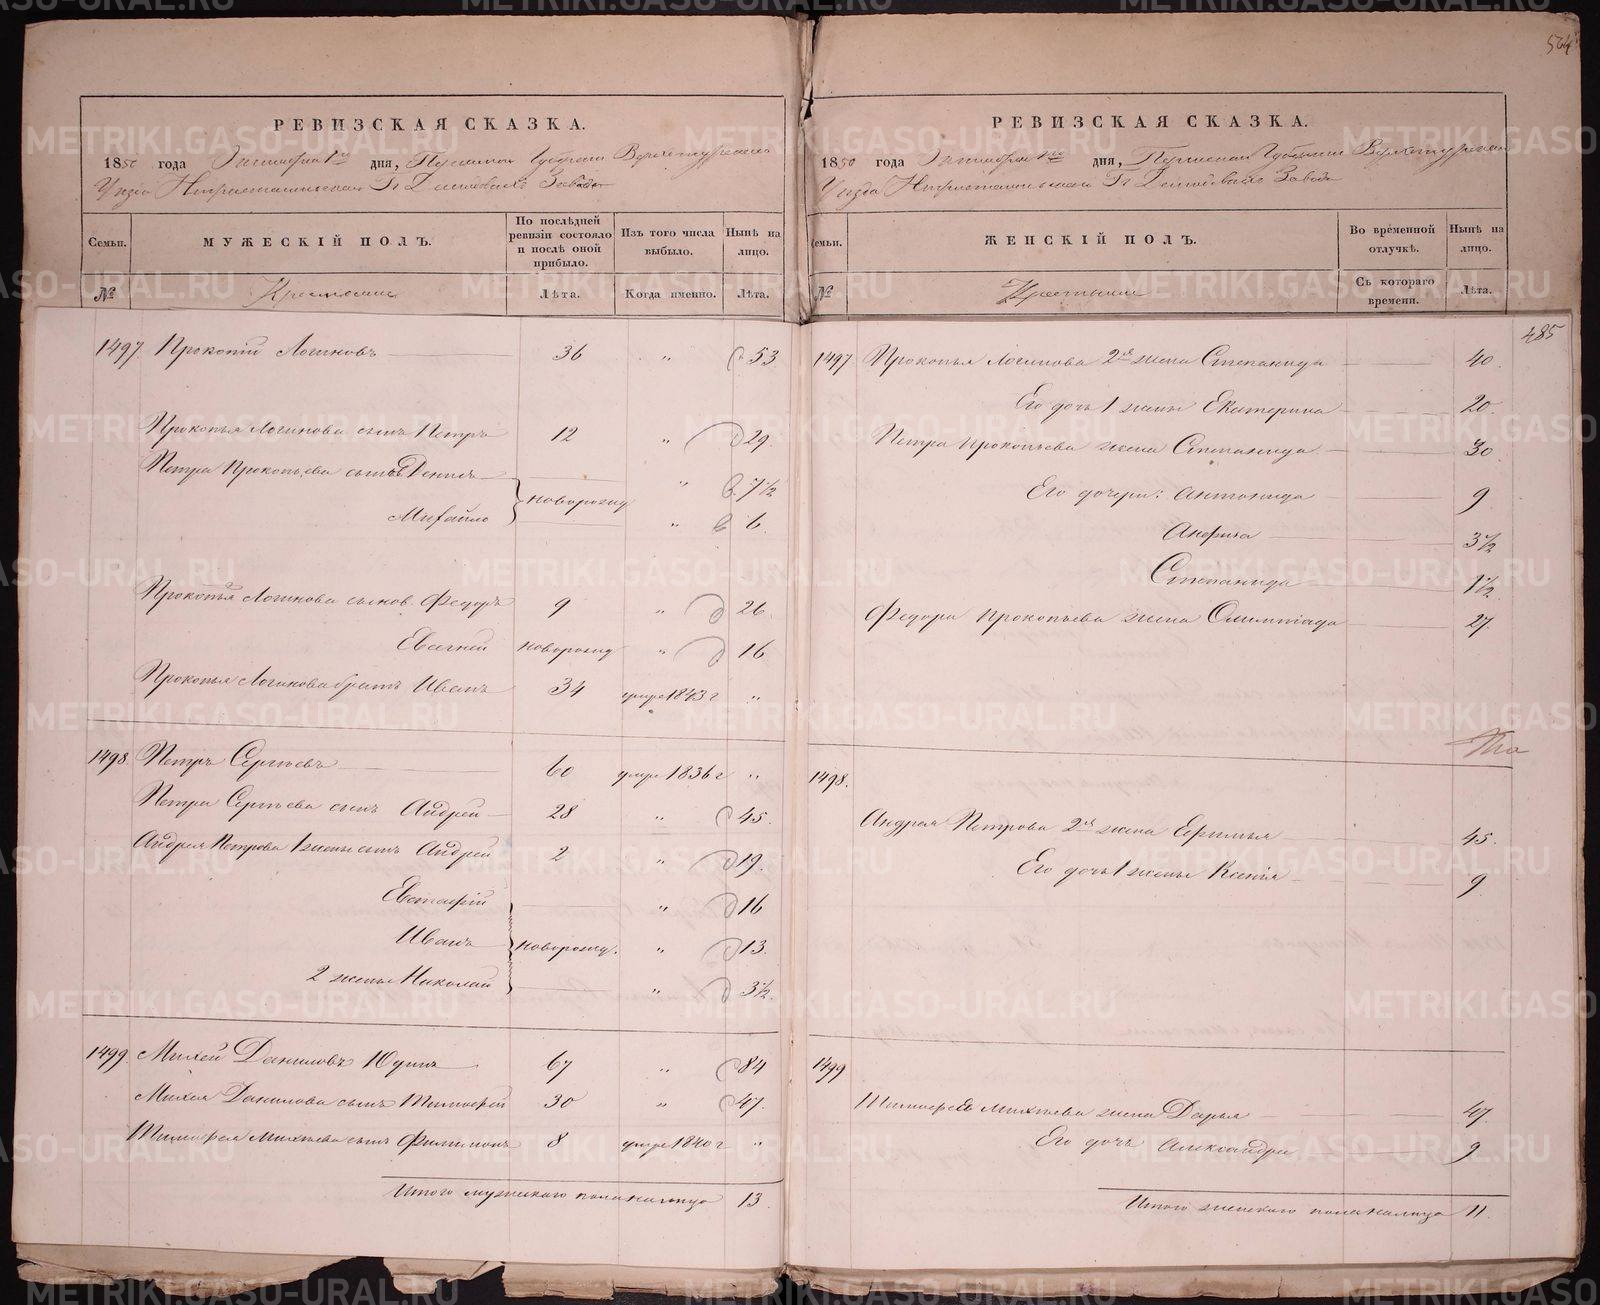 564
РЕВИЗСКАЯ СКАЗКА.
1850 года дня, Пермской Губернии Верхотурскаго
Уезда Нижнетагильскаго Гг Демидовыхъ Завода
Семьи.
МУЖЕСКІЙ ПОЛЪ.
По послѣдней ревизіи состояло и послѣ оной прибыло.
Изъ того числа выбыло.
Нынѣ на лицо.
№
Крестьяне
Лѣта.
Когда именно.
Лѣта.
1497. Прокопій Логиновъ 36 " 53.
Прокопья Логинова сынъ Петръ 12 " 29.
Петра Прокопьева сынъ Денисъ " 7½
новорожд
Михайло " 6.
Прокопья Логинова сынов. Федоръ 9 " 26.
Евгений новорожд " 16
Прокопья Логинова братъ Иванъ 34 умре 1843 г "
1498. Петръ Сергѣевъ 60 умре 1836 г "
Петра Сергѣева сынъ Андрей 28 " 45.
Андрея Петрова 1 жены сынъ Андрей 2 " 19.
Евстафій " 16
Иванъ новорожд. " 13.
2 жены Николай " 3½.
1499. Михей Даниловъ Юдинъ 67 " 84
Михея Данилова сынъ Тимофей 30 " 47.
Тимофея Михѣева сынъ Филимонъ 8 умре 1840 г "
Итого мужескаго пола налицо 13.
РЕВИЗСКАЯ СКАЗКА.
1850 года дня, Пермской Губернии Верхотурскаго
Уезда Нижнетагильскаго Гг Демидовыхъ Завода
Семьи.
ЖЕНСКІЙ ПОЛЪ.
Во врéменной отлучкѣ.
Нынѣ на лицо.
№
Крестьяне
Съ котораго времени.
Лѣта.
485
1497 Прокопья Логинова 2я жена Степанида 40.
Его дочь 1 жены Екатерина 20.
Петра Прокопьева жена Степанида 30
Его дочери: Антонида 9
Анфиса 3½
Степанида 1½.
Федора Прокопьева жена Олимпіада 27.
1498.
Андрея Петрова 2я жена Ефимья 45.
Его дочь 1 жены Ксенія 9
1499
Тимофея Михѣева жена Дарья 47.
Его дочь Александра 9
Итого женскаго пола налицо 11.
METRIKI.GASO-URAL.RU